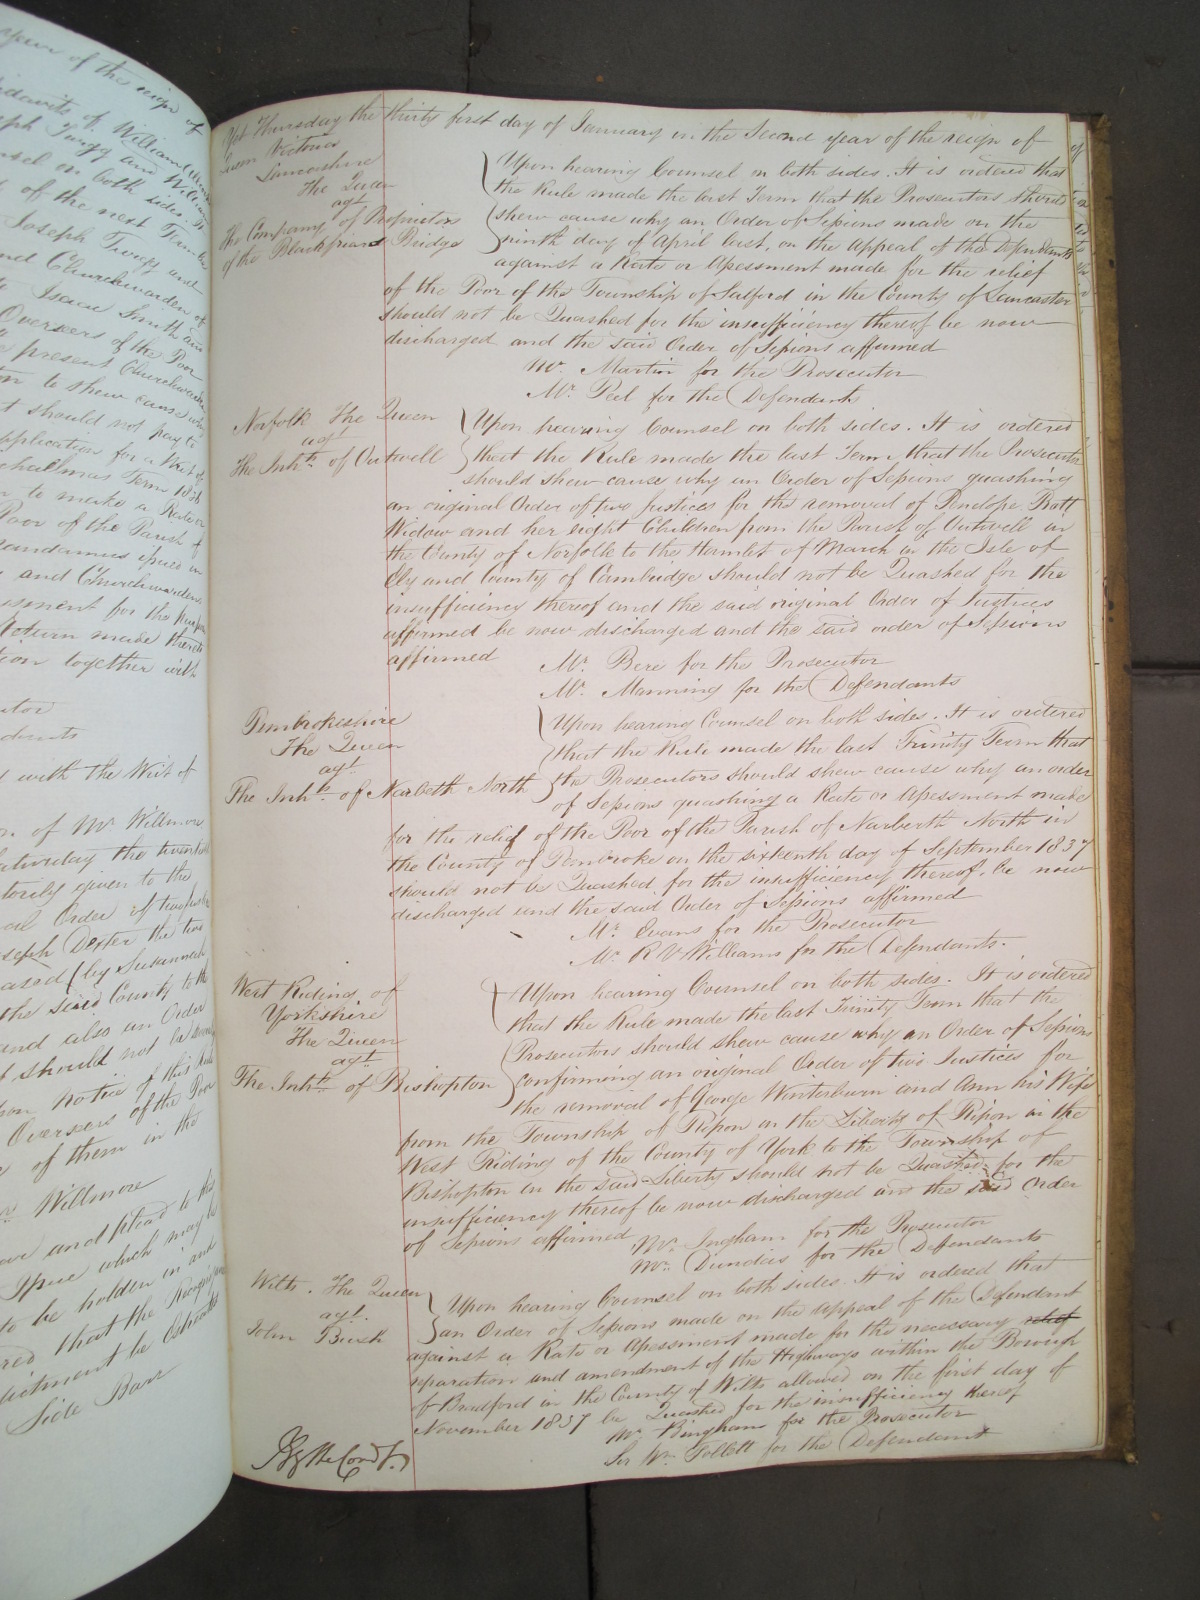 year of the reign of
Affidavits of William
Joseph Twigg and William
Counsel on both sides. It
of the next Term
Joseph Twigg and
and Churchwarden of
Isaac Smith and
Overseers of the Poor
present Churchwarden
to shew cause why
should not pay to
application for a Writ of
Michaelmas Term 1838
to make a Rate or
Poor of the Parish of
Mandamus issued in
and Churchwardens
assessment for the purpose
Return made thereto
together with
with the Writ of
of Mr Willmore
Saturday the twentieth
given to the
Order of two Justices
Joseph Dexter the two
(by Susannah
the said County to the
and also an Order
should not be
upon notice of this Rule
Overseers of the Poor
of them in the
Mr Willmore
and plead to this
Issue which may be
to be holden in and
that the Recognizance
Indictment be Estreated
Side Bar
Yet Thursday the thirty first day of January in the Second year of the reign of
Queen Victoria
Lancashire
The Queen
agt
The Company of Proprietors
of the Blackfriars Bridge
Upon hearing Counsel on both sides. It is ordered that
the Rule made the last Term that the Prosecutors should
shew cause why an Order of Sessions made on the
ninth day of April last, on the appeal of the Defendants
against a Rate or Assessment made for the relief
of the Poor of the Township of Salford in the County of Lancaster
should not be Quashed for the insufficiency thereof be now
discharged and the said Order of Sessions affirmed
Mr. Martin for the Prosecutor
Mr. Peel for the Defendants
Norfolk The Queen
agt
The Inhts. of Outwell
Upon hearing Counsel on both sides. It is ordered
that the Rule made the last Term that the Prosecutor
should shew cause why an Order of Sessions quashing
an original Order of two Justices for the removal of Penelope Pratt
Widow and her eight Children from the Parish of Outwell in
the County of Norfolk to the Hamlet of March in the Isle of
Ely and County of Cambridge should not be Quashed for the
insufficiency thereof and the said original Order of Justices
affirmed be now discharged and the said order of Sessions
affirmed
Mr. Bere for the Prosecutor
Mr. Manning for the Defendants
Pembrokeshire
The Queen
agt
The Inhts. of Narbeth North
Upon hearing Counsel on both sides. It is ordered
that the Rule made the last Trinity Term that
the Prosecutors should shew cause why an order
of Sessions quashing a Rate or Assessment made
for the relief of the Poor of the Parish of Narberth North in
the County of Pembroke on the sixteenth day of September 1837
should not be Quashed for the insufficiency thereof, be now
discharged and the said Order of Sessions affirmed
Mr. Evans for the Prosecutor
Mr. R V Williams for the Defendants.
West Riding of
Yorkshire
The Queen
agt
The Inhts. of Bishopton
Upon hearing Counsel on both sides. It is ordered
that the Rule made the last Trinity Term that the
Prosecutors should shew cause why an Order of Sessions
confirming an original Order of two Justices for
the removal of George Winterburn and Ann his Wife
from the Township of Ripon in the Liberty of Ripon in the
West Riding of the County of York to the Township of
Bishopton in the said Liberty should not be Quashed for the
insufficiency thereof be now discharged and the said Order
of Sessions affirmed
Mr. Ingham for the Prosecutor
Mr. Dundas for the Defendants
Wilts. The Queen
agt.
John
Upon hearing Counsel on both sides. It is ordered that
an Order of Sessions made on the appeal of the Defendant
against a Rate or Assessment made for the necessary relief
reparation and amendment of the Highways within the Borough
of Bradford in the County of Wilts allowed on the first day of
November 1837 be Quashed for the insufficiency thereof
Mr. Bingham for the Prosecutor
Sir Wm. Follett for the Defendant
By the Court.